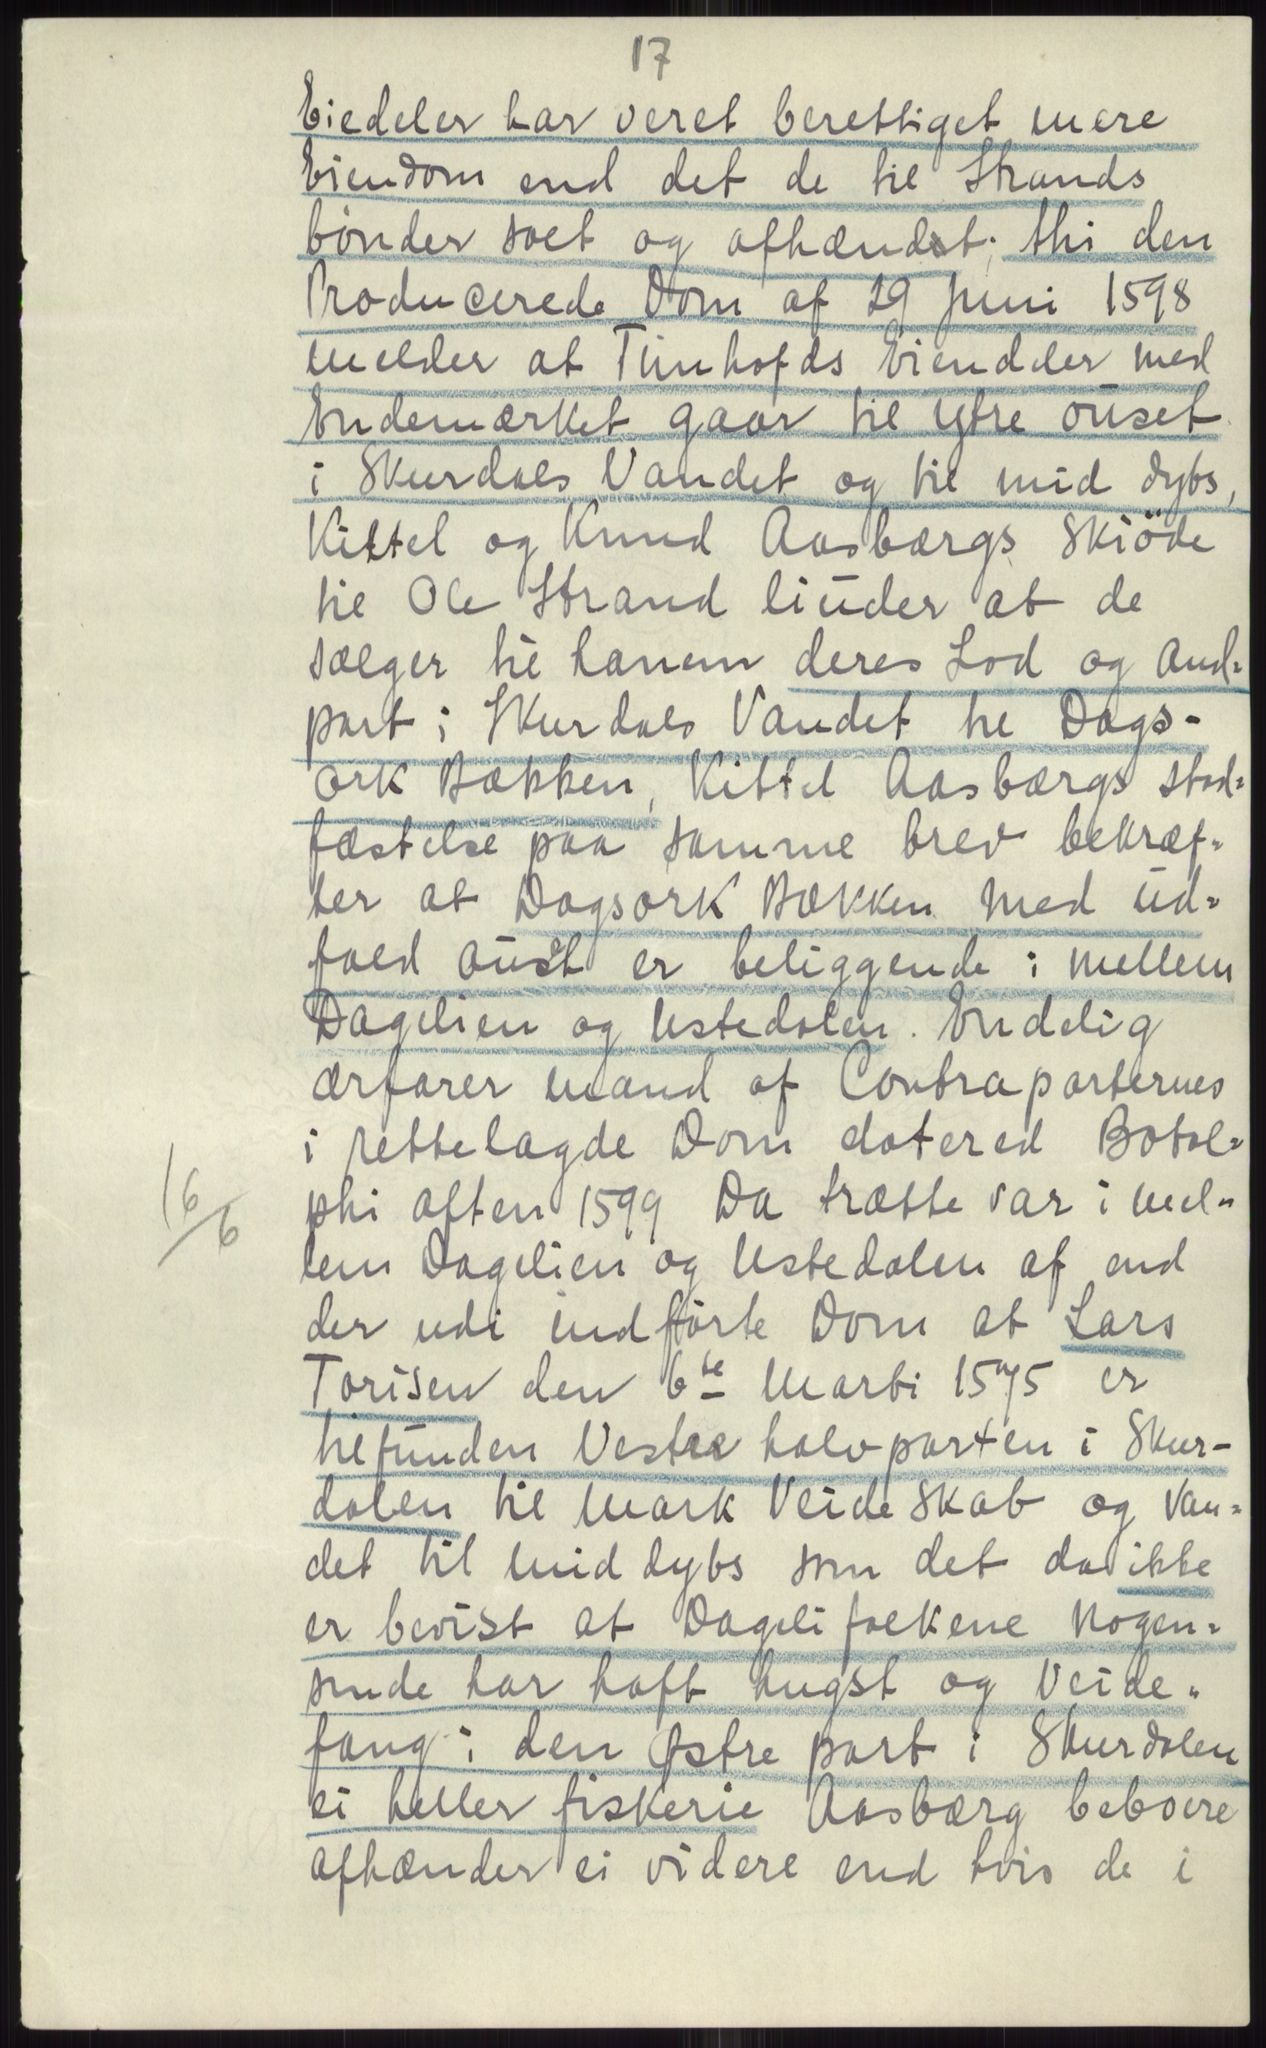 17
Eiedeler har veret berettiget mere
Eiendom end det de til Strands
bønder solt og afhændet; thi den
Producerede Dom af 29 Juni 1598
melder at Tunhofds Eiendeler med
Endemærket gaar til ytre ouset
i Skurdals Vandet og til mid dybs,
Kittel og Knud Aasbærgs Skiöde
til Ole Strand liuder at de
sælger til hanem deres Lod og And-
part i Skurdals Vandet til Dags-
ork Bækken, Kittel Aasbærgs stad-
fæstelse paa samme brev bekræf-
ter at Dagsork Bækken med ud-
fald oust er beliggende i mellem
Dagelien og Ustedalen. Endelig
ærfarer mand af Contraparternes
i rettelagde Dom datered Botol-
16/6
phi aften 1599 Da trætte var i mel-
lem Dagelien og Ustedalen af end
der udi indførte Dom at Lars
Torisen den 6te Marti 1575 er
tilfunden Vestre halvparten i Skur-
dalen til Mark Veideskab og Van-
det til mid dybs som det da ikke
er bevist at Dagelifolkene Nogen-
sinde har haft hugst og Veide-
fang i den østre part i Skurdalen
ei heller fiskerie Aasbærg beboere
afhænder ei videre end hvis de i